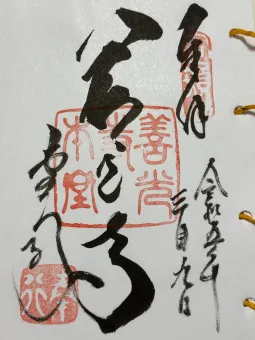 奉拝
善光寺
善光
寺
本堂
令和五年
三月九日